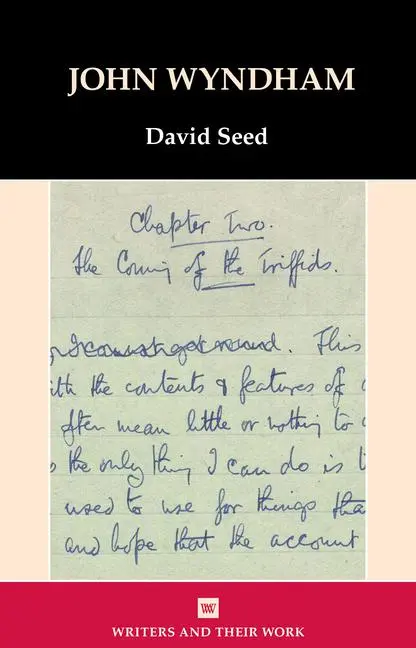 JOHN WYNDHAM
David Seed
Chapter Two.
The Coming of the Triffids.
This
ith the contents & features of
often mean little or nothing to
the only thing I can do is
used to use for things tha
and hope that the account
W
WRITERS AND THEIR WORK